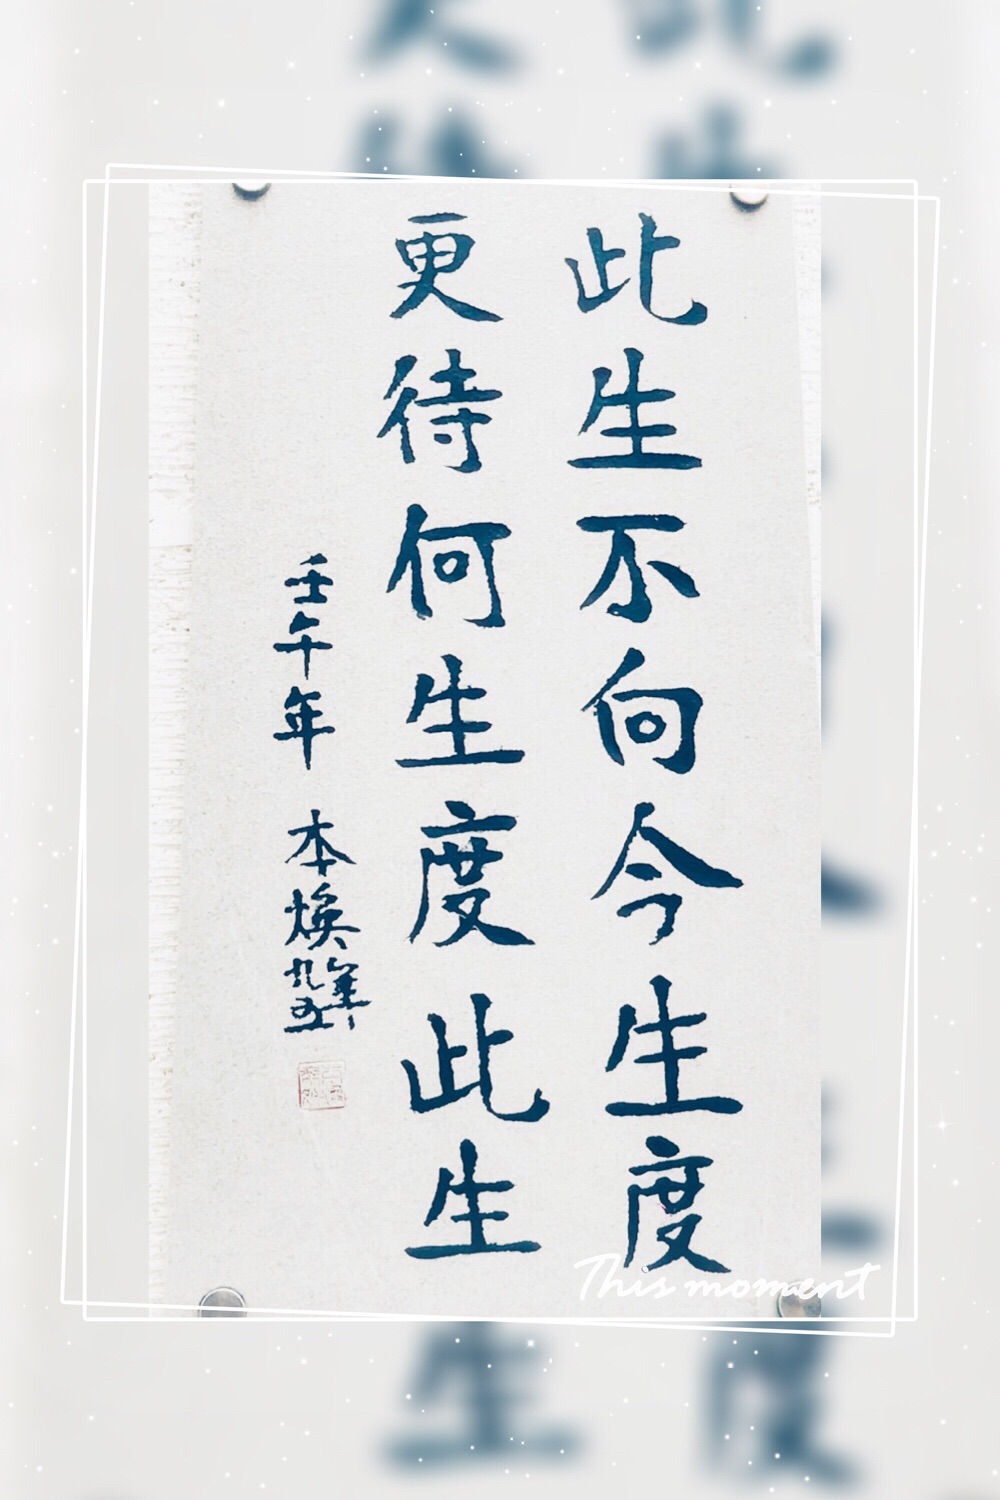 此生不向今生度
更待何生度此生
壬午年 本焕年九五
This moment